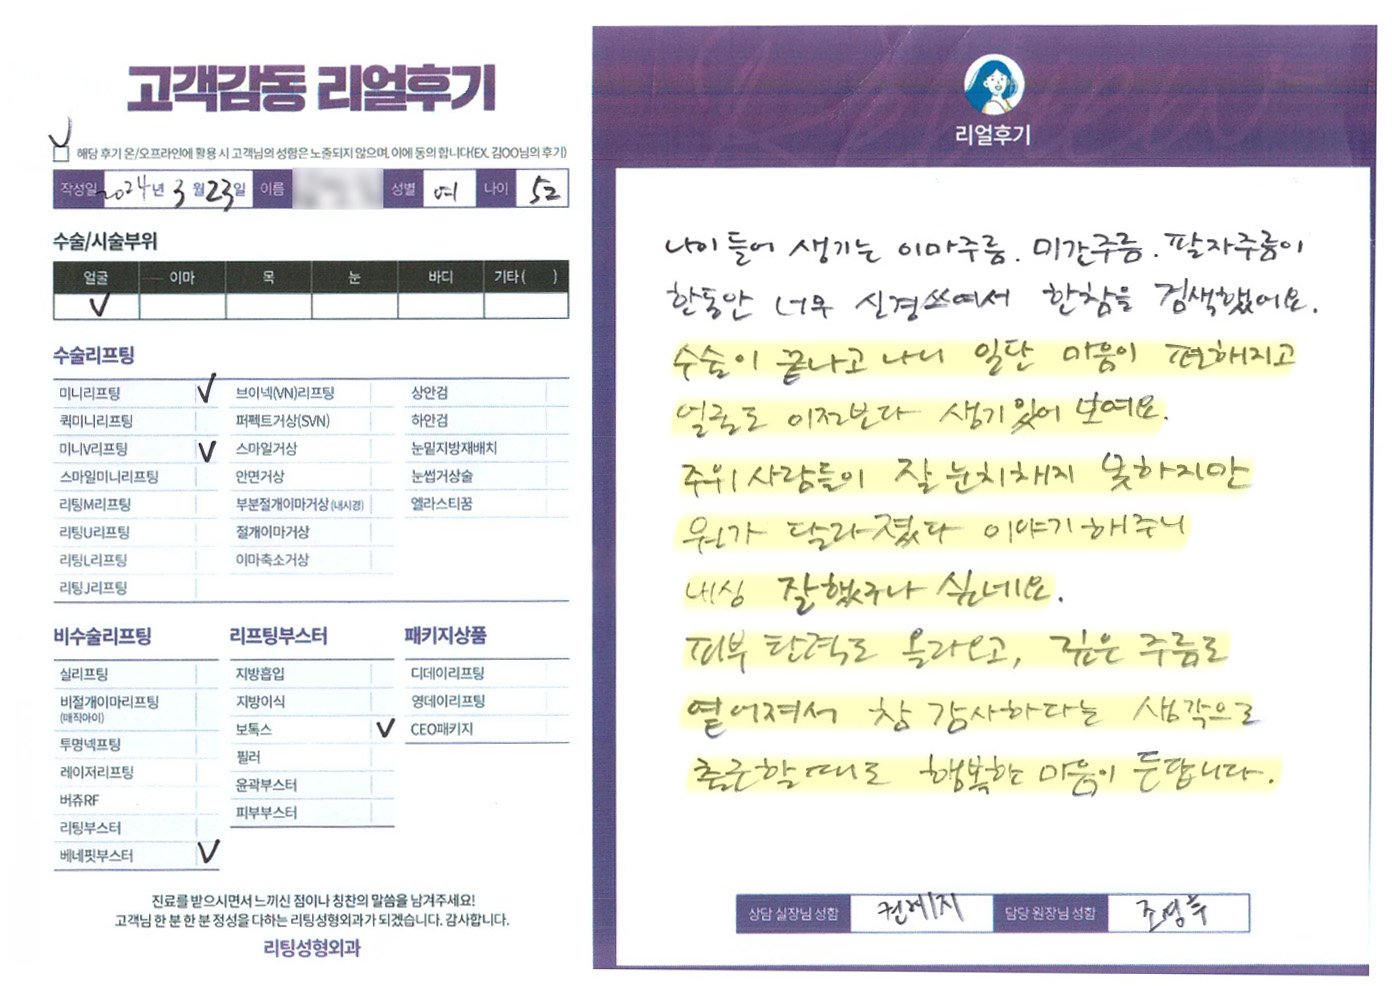 고객감동 리얼후기
해당 후기 온/오프라인에 활용 시 고객님의 성함은 노출되지 않으며, 이에 동의 합니다(EX. 김OO님의 후기)
작성일 2024년 3월 23일 이름 성별 여 나이 52
수술/시술부위
얼굴 이마 목 눈 바디 기타( )
수술리프팅
미니리프팅 브이넥(VN)리프팅 상안검
퀵미니리프팅 퍼펙트거상(SVN) 하안검
미니V리프팅 스마일거상 눈밑지방재배치
스마일미니리프팅 안면거상 눈썹거상술
리팅M리프팅 부분절개이마거상(내시경) 엘라스티꿈
리팅U리프팅 절개이마거상
리팅L리프팅 이마축소거상
리팅J리프팅
비수술리프팅 리프팅부스터 패키지상품
실리프팅 지방흡입 디데이리프팅
비절개이마리프팅 지방이식 영데이리프팅
(매직아이)
투명넥프팅 보톡스 CEO패키지
레이저리프팅 필러
버쥬RF 윤곽부스터
리팅부스터 피부부스터
베네핏부스터
진료를 받으시면서 느끼신 점이나 칭찬의 말씀을 남겨주세요!
고객님 한 분 한 분 정성을 다하는 리팅성형외과가 되겠습니다. 감사합니다.
리팅성형외과
리얼후기
나이 들어 생기는 이마주름. 미간주름. 팔자주름이
한동안 너무 신경쓰여서 한참을 검색했어요.
수술이 끝나고 나니 일단 마음이 편해지고
얼굴도 이전보다 생기있어 보여요.
주위 사람들이 잘 눈치채지 못하지만
뭔가 달라졌다 이야기해주니
내심 잘했구나 싶네요.
피부 탄력도 올라오고, 깊은 주름도
옅어져서 참 감사하다는 생각으로
출근할 때도 행복한 마음이 든답니다.
상담 실장님 성함 권예지 담당 원장님 성함